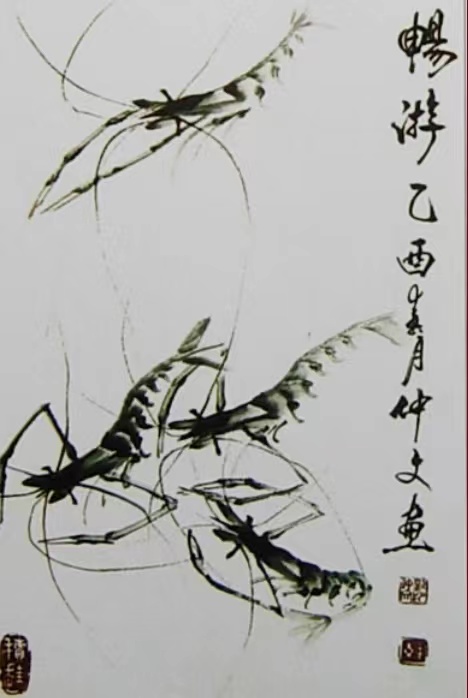 暢游乙酉春月仲文画